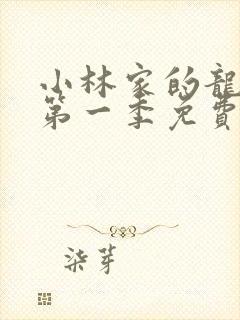 小林家的龍
第一季免費
柒芽